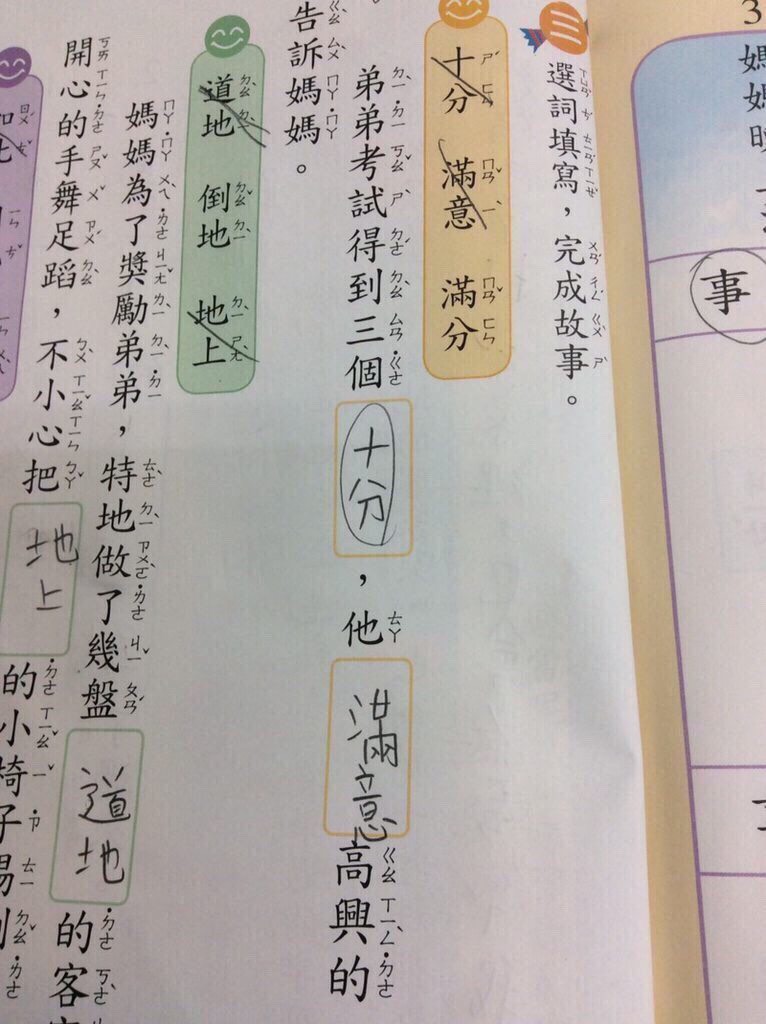 3
媽媽
事
三
選詞填寫，完成故事。
十分 滿意 滿分
弟弟考試得到三個十分，他滿意高興的
告訴媽媽。
道地 倒地 地上
媽媽為了獎勵弟弟，特地做了幾盤道地的客
開心的手舞足蹈，不小心把地上的小椅子